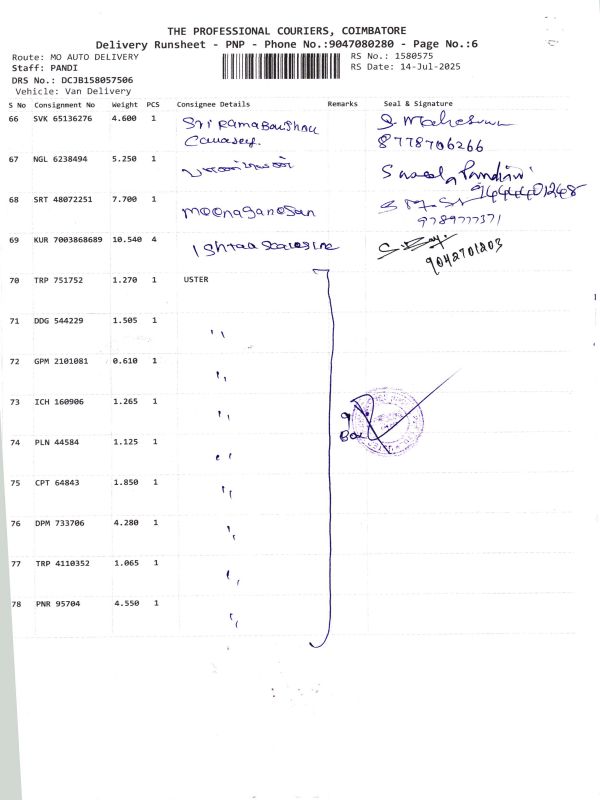 THE PROFESSIONAL COURIERS, COIMBATORE
Delivery Runsheet - PNP - Phone No.:9047080280 - Page No.:6
Route: MO AUTO DELIVERY RS No.: 1580575
Staff: PANDI RS Date: 14-Jul-2025
DRS No.: DCJB158057506
Vehicle: Van Delivery
S No Consignment No Weight PCS Consignee Details Remarks Seal & Signature
66 SVK 65136276 4.600 1 Sri Rama
8778706266
67 NGL 6238494 5.250 1
68 SRT 48072251 7.700 1 moonaganesan
9789777371
69 KUR 7003868689 10.540 4 Ishtaa
9042701803
70 TRP 751752 1.270 1 USTER
71 DDG 544229 1.505 1 "
72 GPM 2101081 0.610 1 "
73 ICH 160906 1.265 1 " 9
74 PLN 44584 1.125 1 " Box
75 CPT 64843 1.850 1 "
76 DPM 733706 4.280 1 "
77 TRP 4110352 1.065 1 "
78 PNR 95704 4.550 1 "